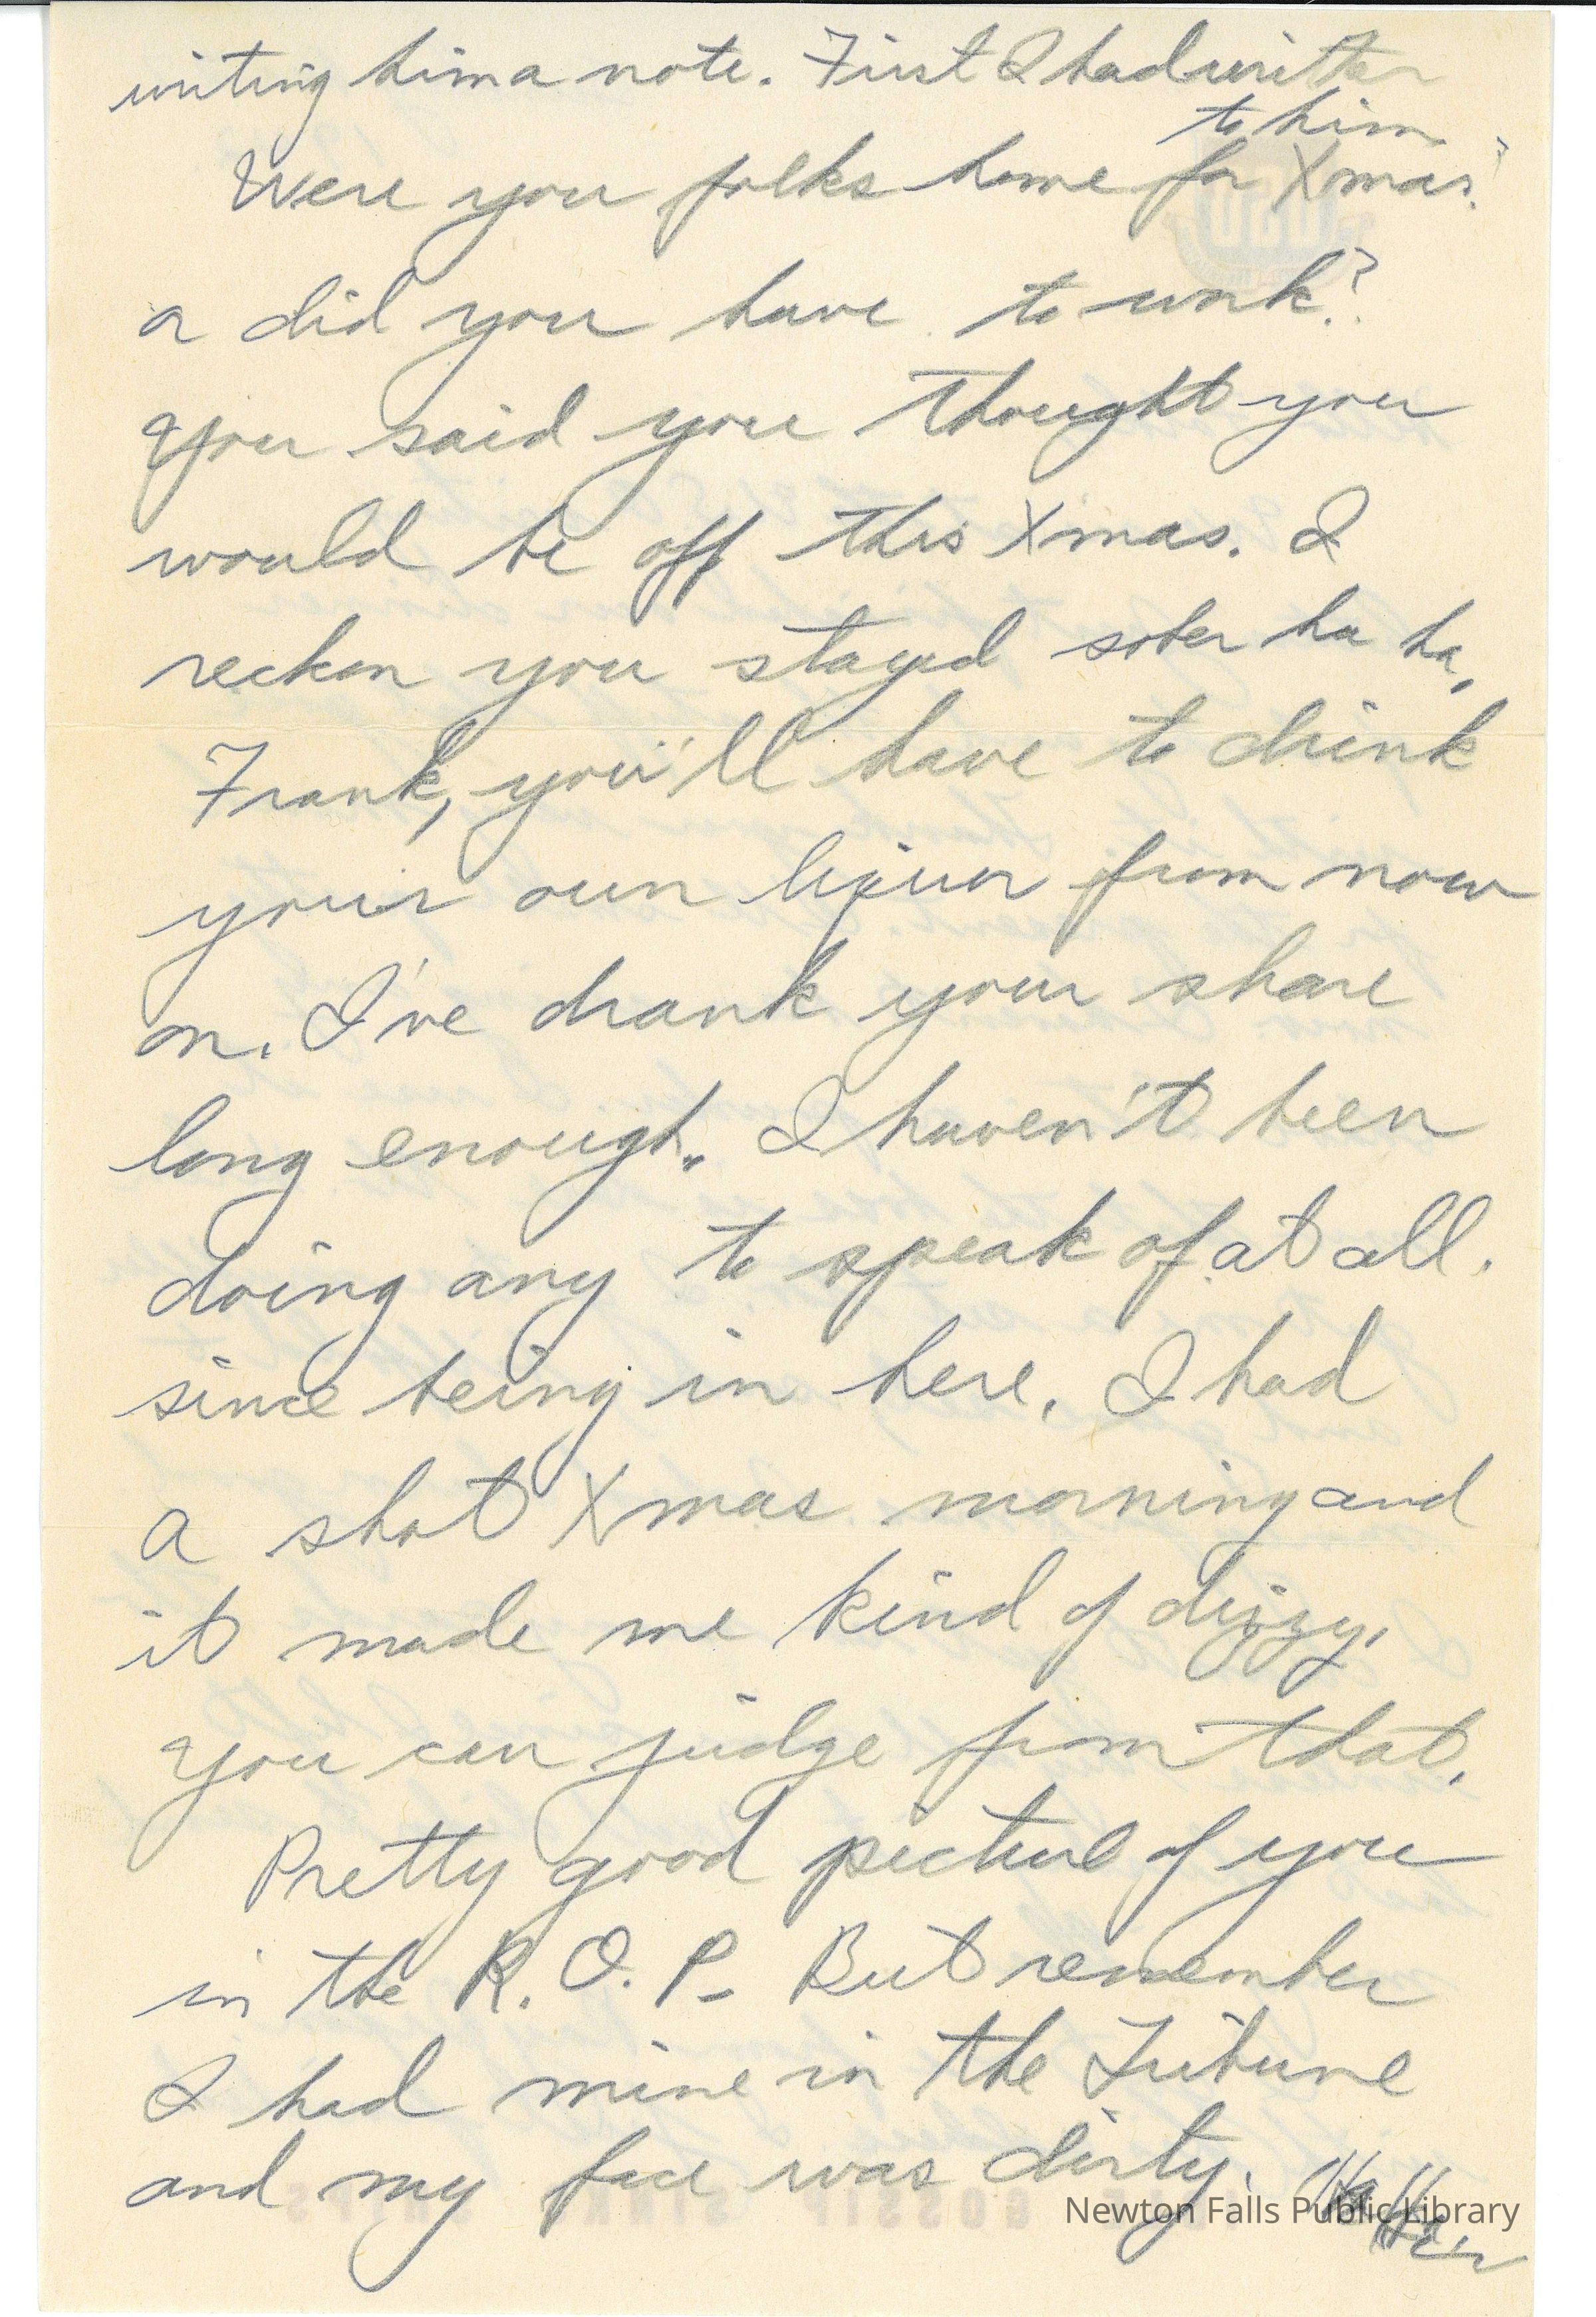 writing him a note. First I had written
to him
Were you folks home for Xmas?
or did you have to work?
You said you thought you
would be off this Xmas. I
reckon you stayed sober ha ha,
Frank, you'll have to drink
your own liquor from now
on. I've drank your share
long enough. I haven't been
doing any to speak of at all.
since being in here. I had
a shot Xmas morning and
it made me kind of dizzy.
You can judge from that.
Pretty good picture of you
in the R.O.P. But remember
I had mine in the Tribune
and my face was dirty. Ha Ha
Newton Falls Public Library